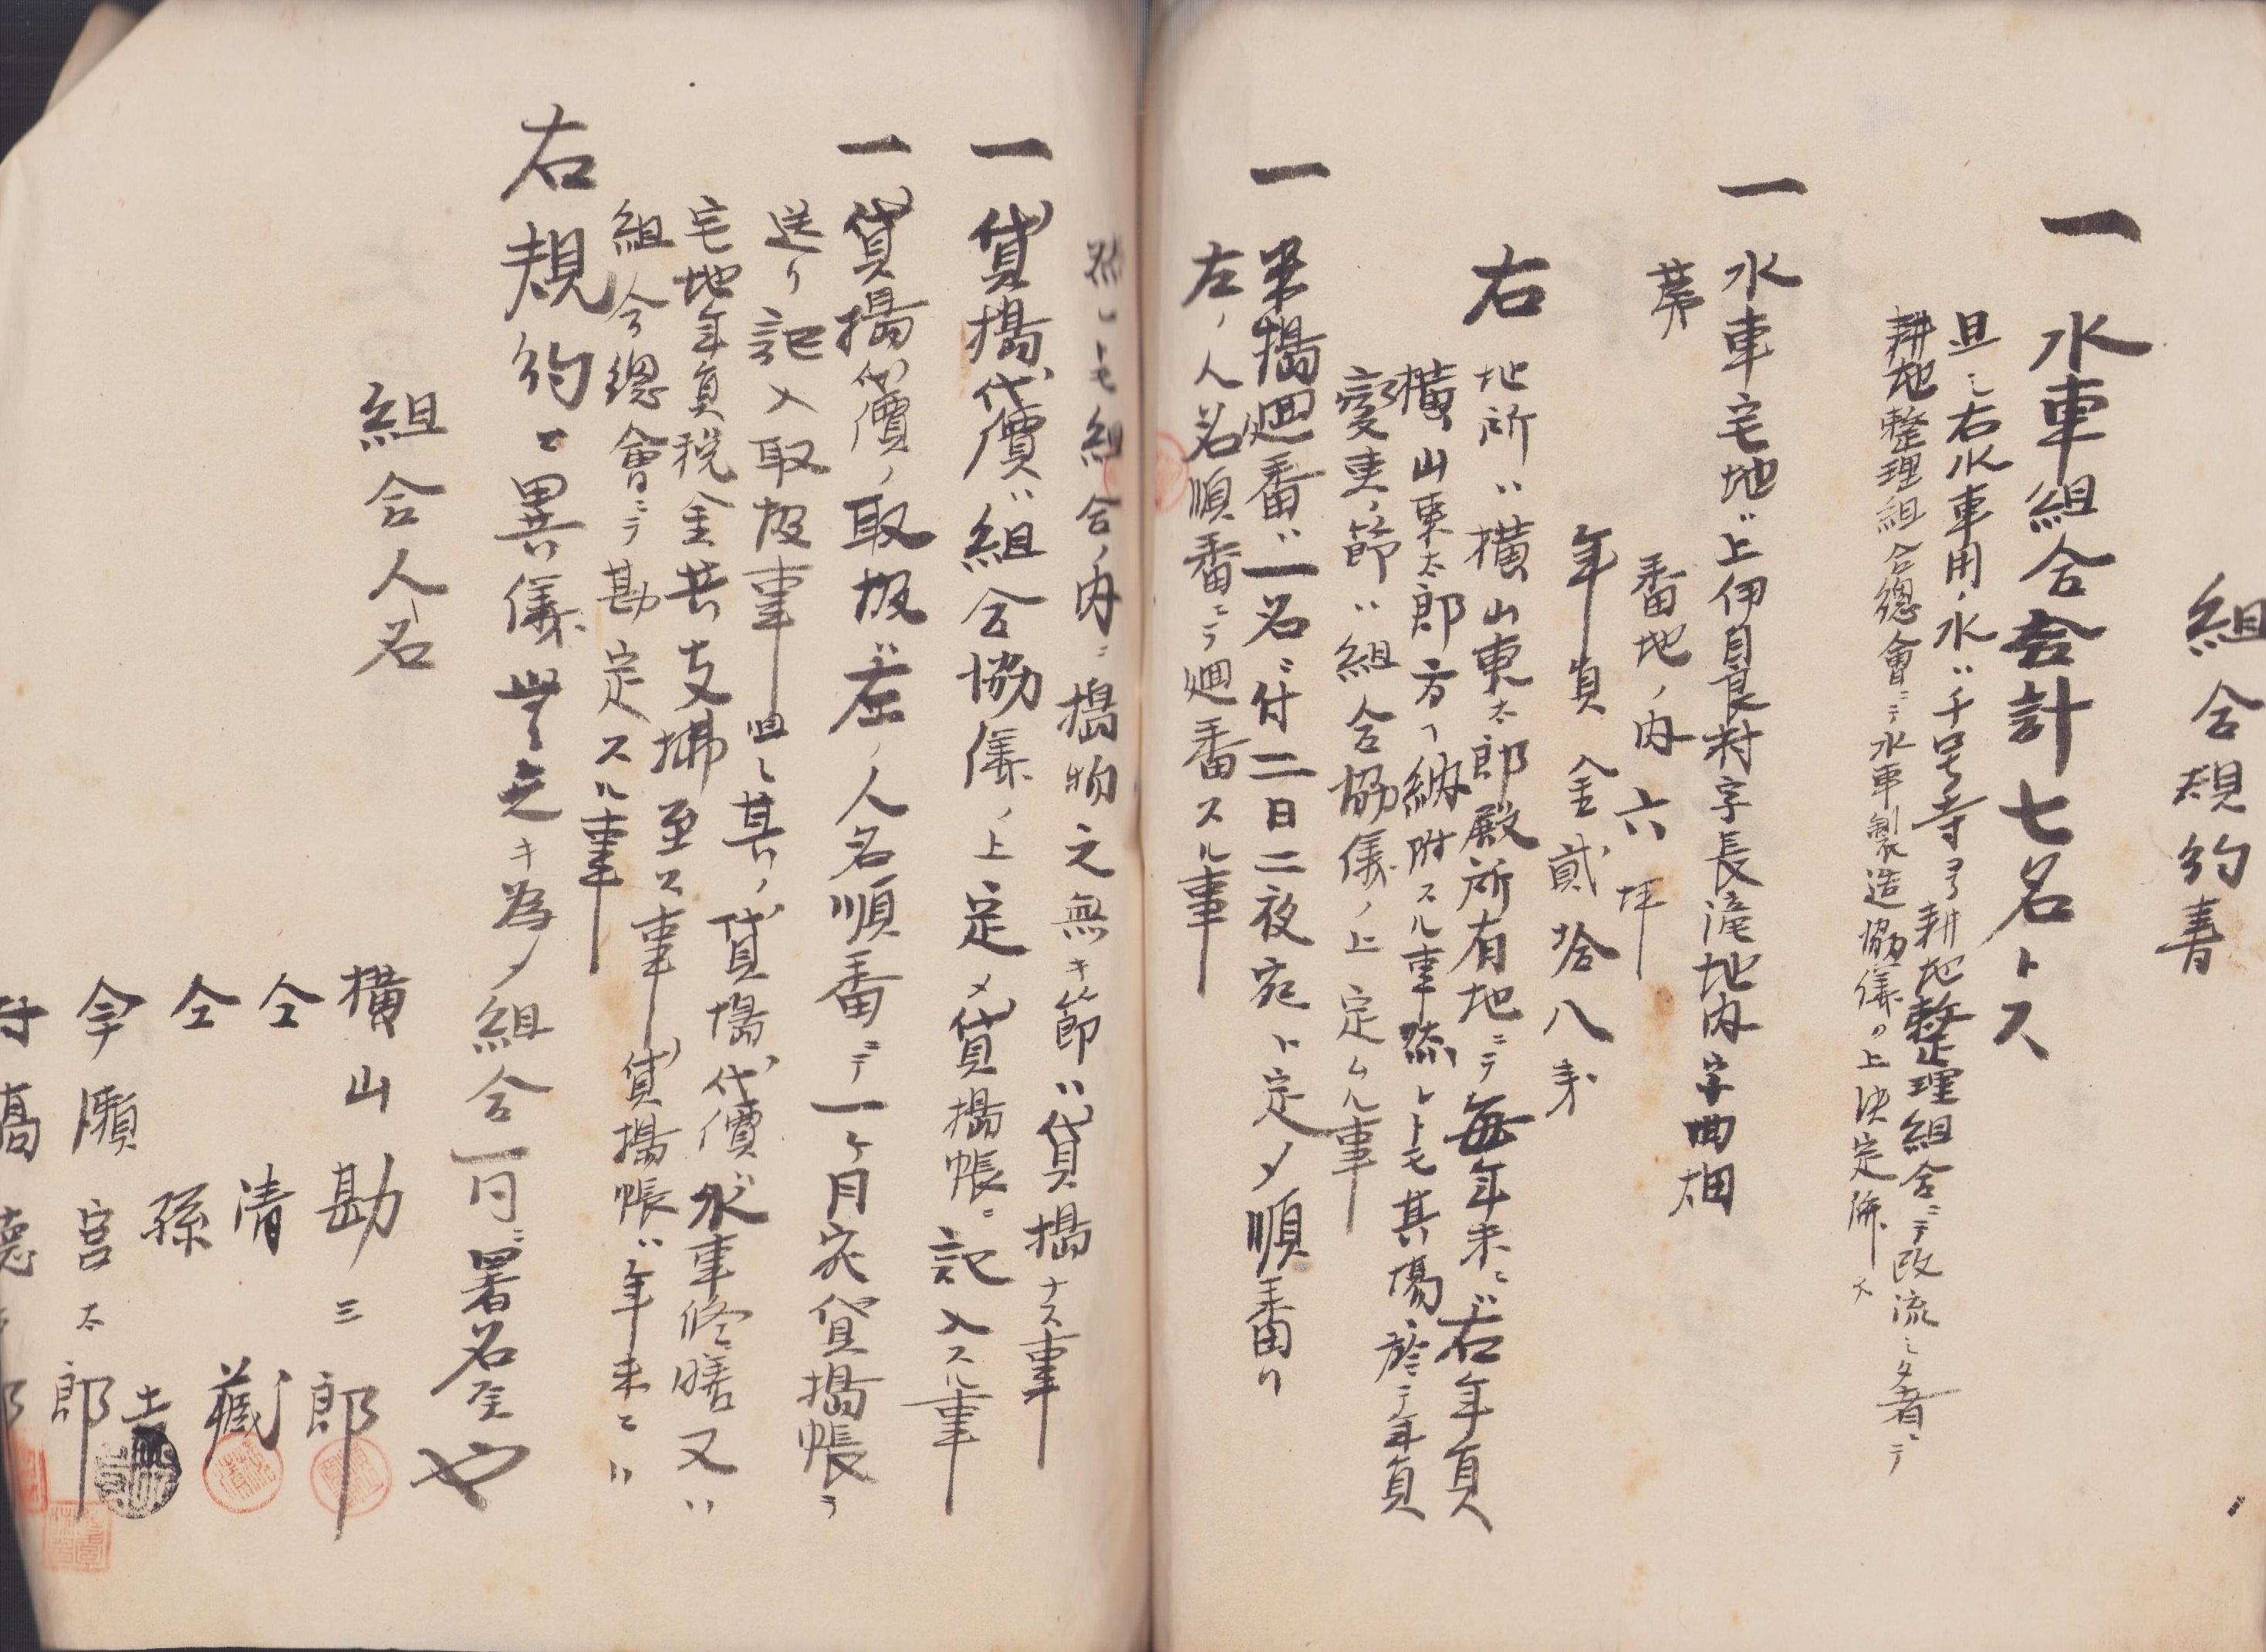 組合規約書
一 水車組合合計七名トス
且シ右水車用ノ水ハ千＿寺ヨリ耕地整理組合ニテ改流シタ者ニテ
耕地整理組合總會ニテ水車製造協儀ノ上決定係ス
一 水車宅地ハ上伊自良村字長滝地内字曲畑
第
番地ノ内六坪
年貢金貳拾八才
右 地所ハ横山東太郎殿所有地ニテ毎年末ニハ右年貢
横山東太郎方ヘ納附スル事然レトモ其場於ニテ年貢
変更ノ節ハ組合協儀ノ上定ムル事
一 米搗廻番ハ一名ニ付二日二夜宛ト定メ順番リ
左ノ人名順番ニテ廻番スル事
然レトモ組合ノ内ニ搗物之無キ節ハ貸搗ナス事
一 貸搗代價ハ組合協儀ノ上定メ貸搗帳ニ記入スル事
一 貸搗代價ノ取扱ハ左ノ人名順番ニテ一ヶ月宛貸搗帳ヲ
送リ記入取扱事 且シ其ノ貸搗代價ハ水車修膳又ハ
宅地年貢税金共支拂至ス事 貸搗帳ハ年末ニハ
組合總會ニテ勘定スル事
右規約ニ異儀無之キ為メ組合一同ニ署名至也
組合人名
横山勘三郎
仝 清藏
仝 孫吉
今瀬宮太郎